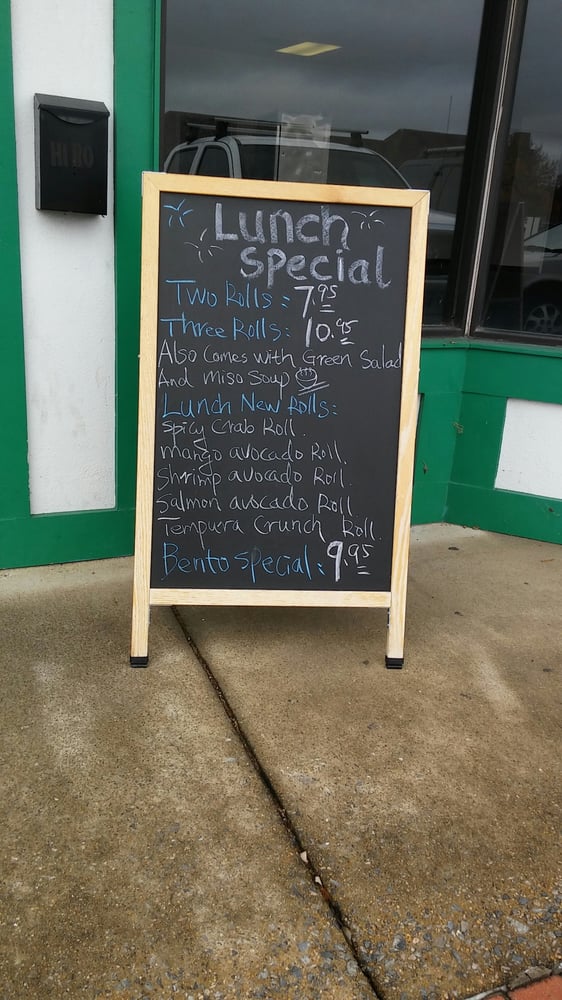 HIRO
Lunch
Special
Two Rolls: 7.95
Three Rolls: 10.95
Also Comes with Green Salad
And Miso Soup
Lunch New Rolls:
Spicy Crab Roll.
mango avocado Roll.
Shrimp avocado Roll.
Salmon avocado Roll
Tempura Crunch Roll.
Bento Special: 9.95